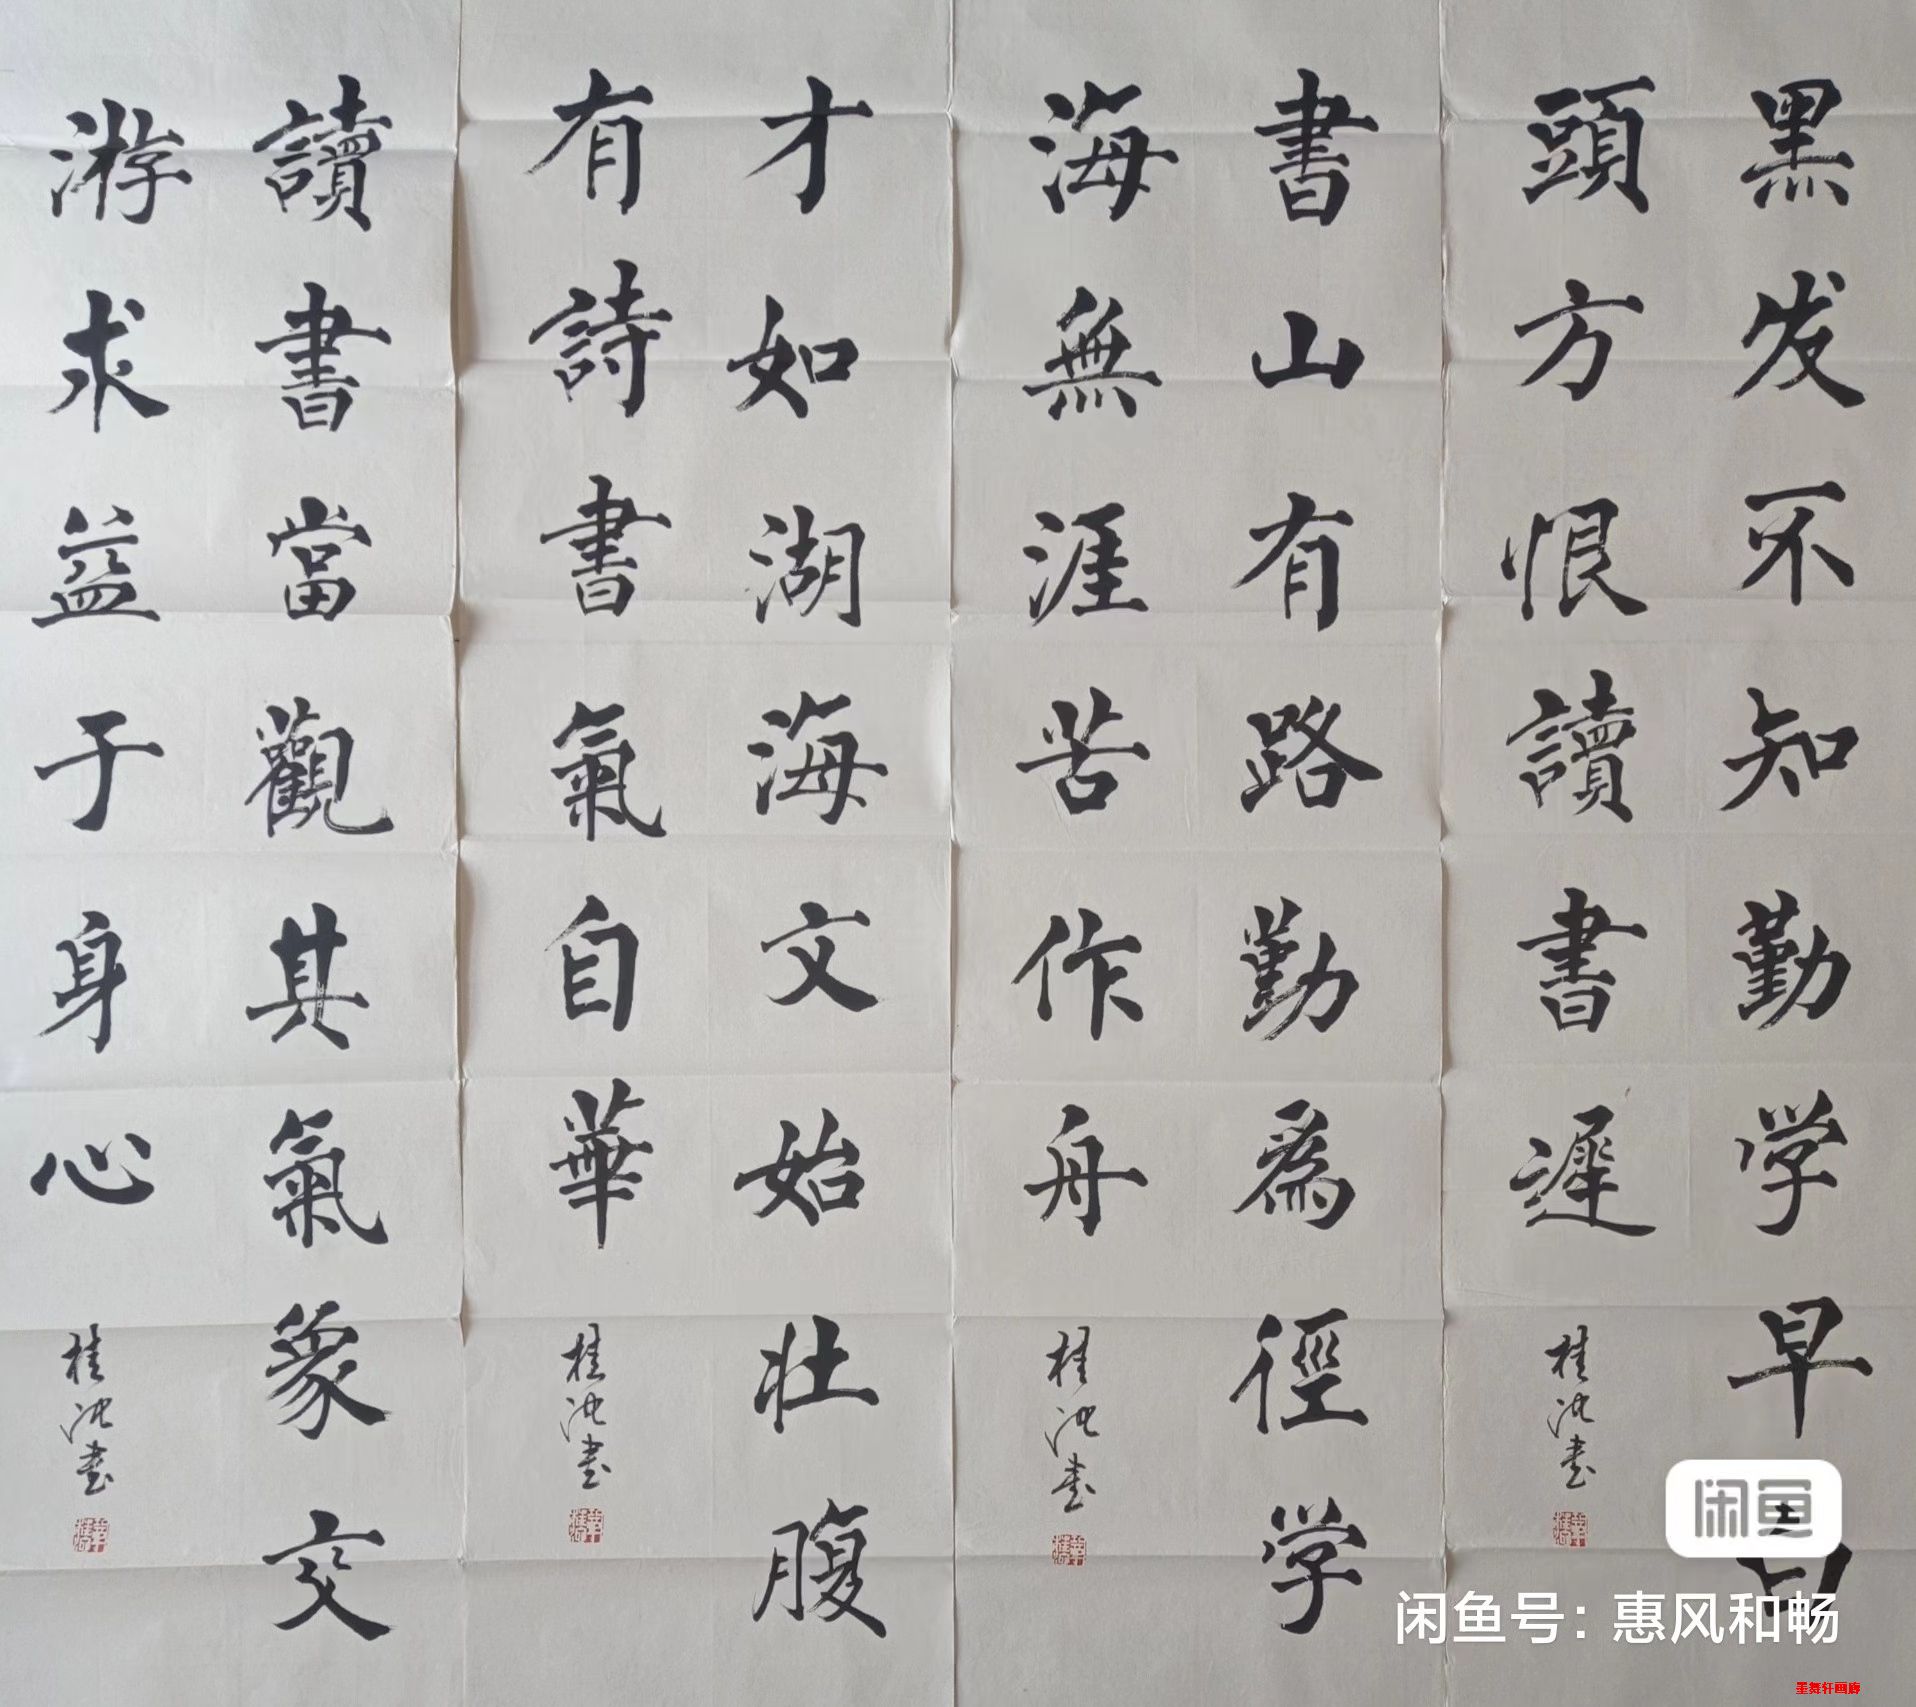 黑发不知勤学早白
頭方恨讀書遲
桂池書
書山有路勤爲徑学
海無涯苦作舟
桂池書
才如湖海文始壮腹
有詩書氣自華
桂池書
讀書當觀其氣象交
游求益于身心
桂池書
闲鱼
闲鱼号：惠风和畅
墨舞轩画廊